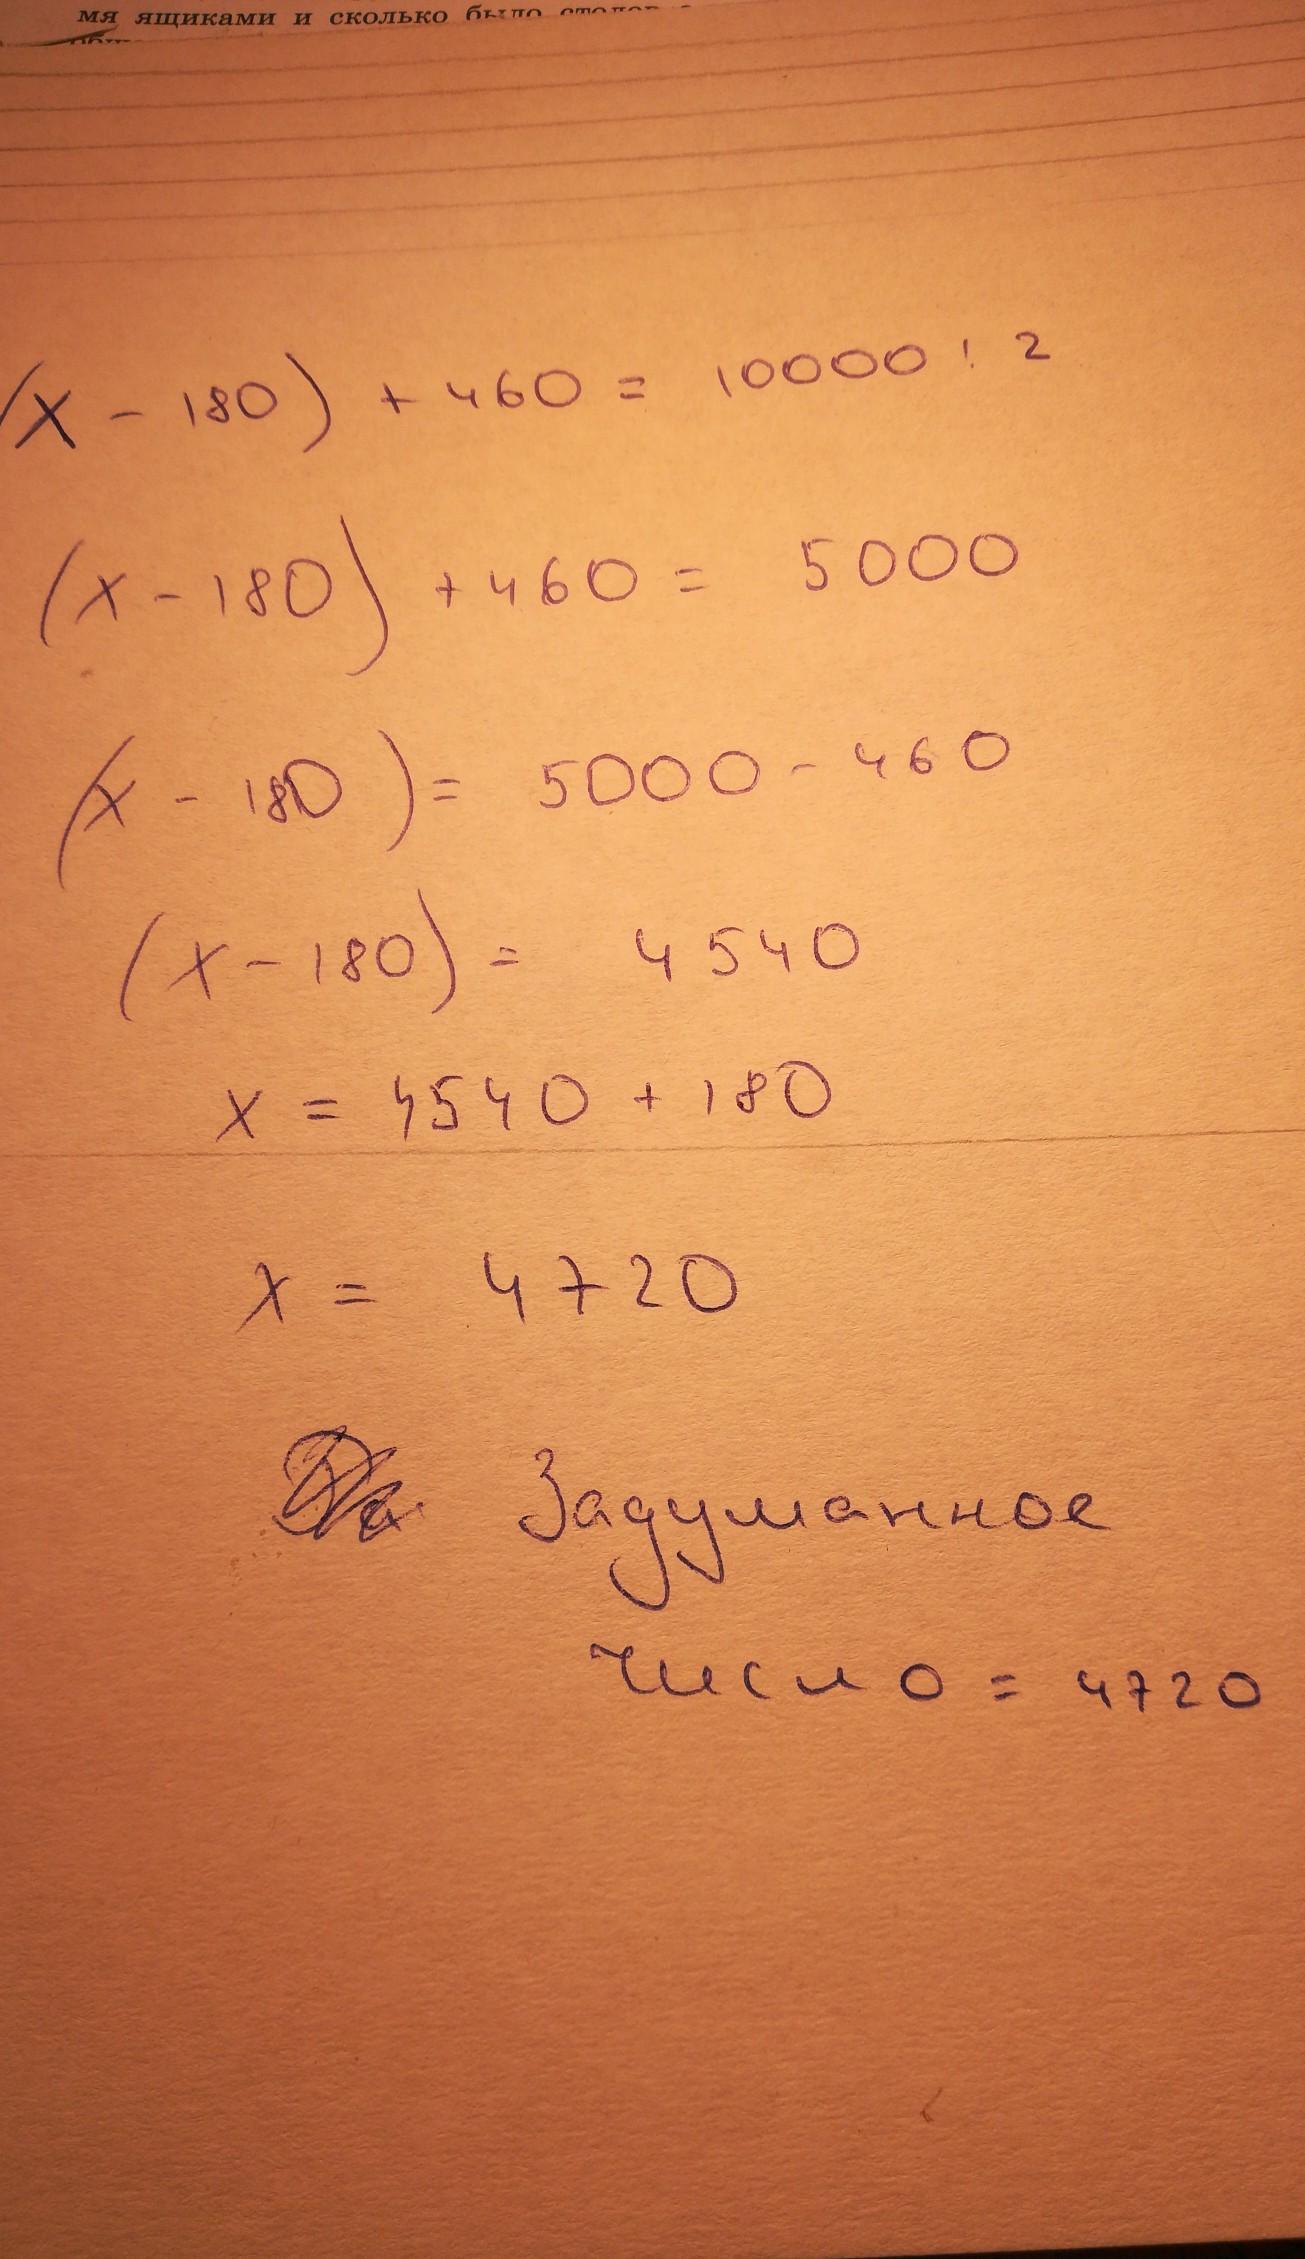 мя ящиками и сколько было столов
(x - 180) + 460 = 10000 : 2
(x - 180) + 460 = 5000
(x - 180) = 5000 - 460
(x - 180) = 4540
x = 4540 + 180
x = 4720
Задуманное
число = 4720